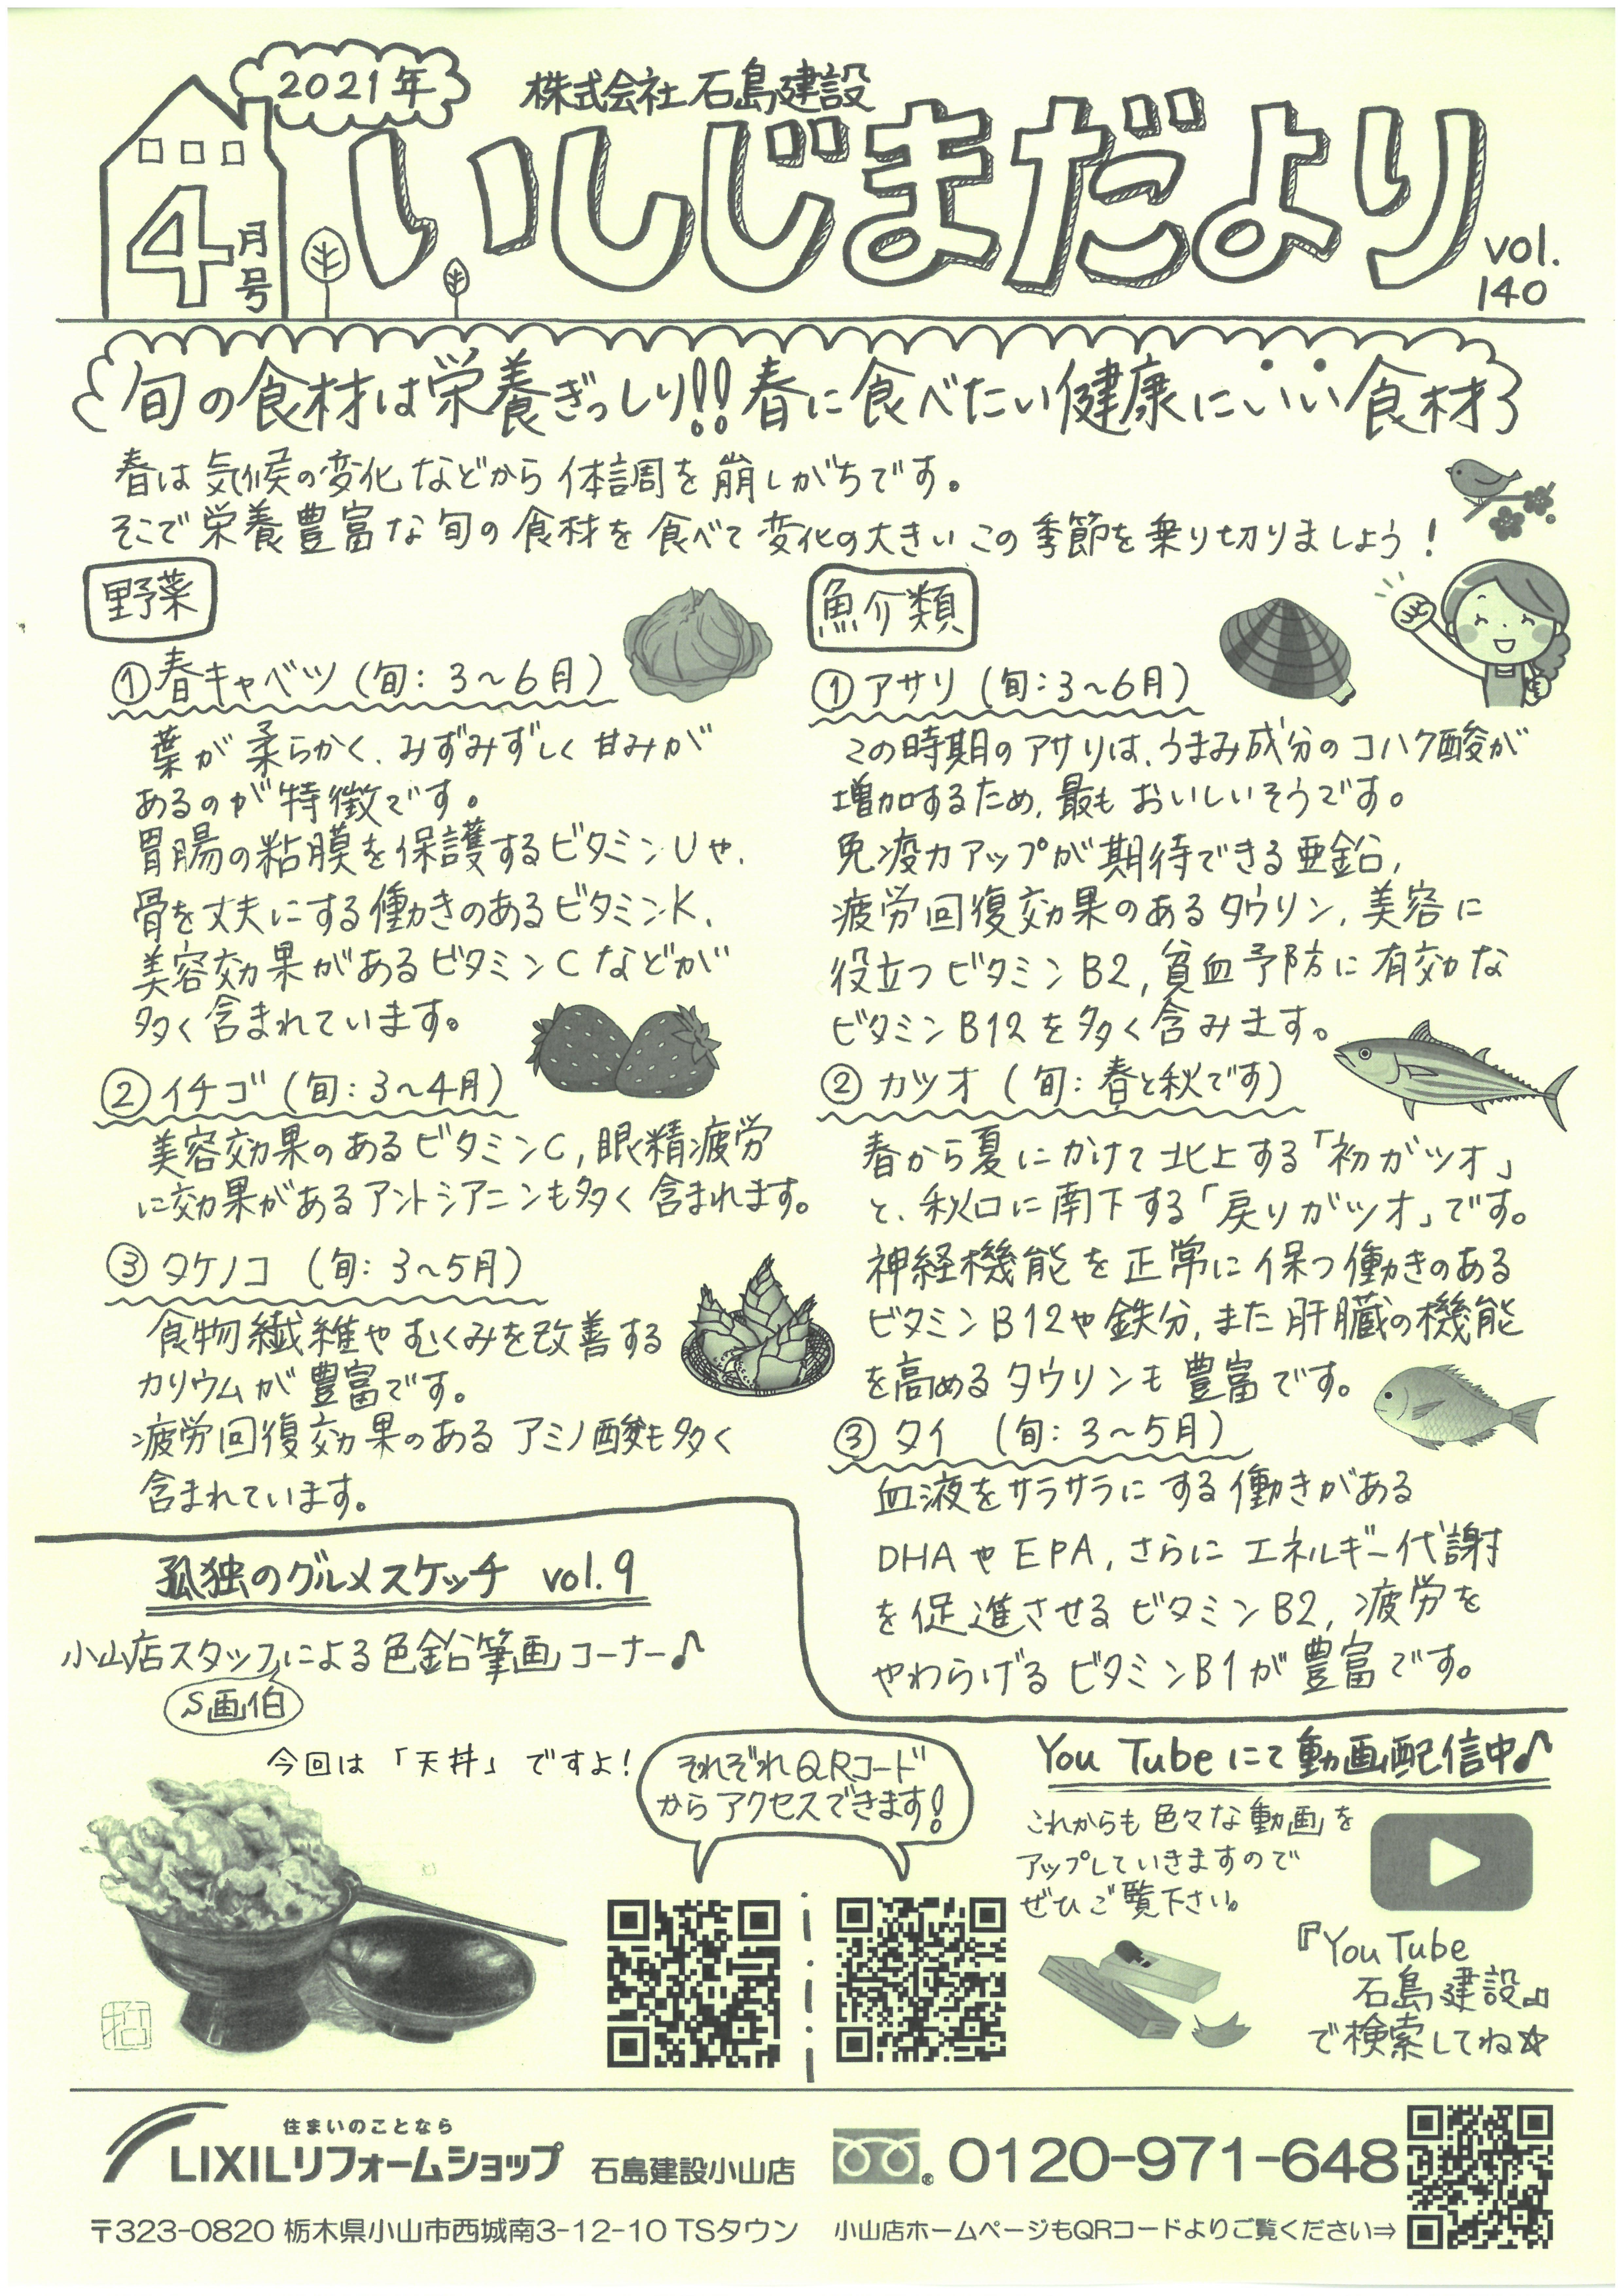 2021年
株式会社石島建設
4月号
いしじまだより
vol.
140
旬の食材は栄養ぎっしり!!春に食べたい健康にいい食材
春は気候の変化などから体調を崩しがちです。
そこで栄養豊富な旬の食材を食べて変化の大きいこの季節を乗り切りましょう!
野菜
①春キャベツ(旬:3~6月)
葉が柔らかく、みずみずしく甘みが
あるのが特徴です。
胃腸の粘膜を保護するビタミンUや、
骨を丈夫にする働きのあるビタミンK、
美容効果があるビタミンCなどが
多く含まれています。
②イチゴ(旬:3~4月)
美容効果のあるビタミンC,眼精疲労
に効果があるアントシアニンも多く含まれます。
③タケノコ(旬:3~5月)
食物繊維やむくみを改善する
カリウムが豊富です。
疲労回復効果のあるアミノ酸も多く
含まれています。
魚介類
①アサリ(旬:3~6月)
この時期のアサリは、うまみ成分のコハク酸が
増加するため、最もおいしいそうです。
免疫力アップが期待できる亜鉛,
疲労回復効果のあるタウリン、美容に
役立つビタミンB2,貧血予防に有効な
ビタミンB12を多く含みます。
②カツオ(旬:春と秋です)
春から夏にかけて北上する「初ガツオ」
と、秋口に南下する「戻りガツオ」です。
神経機能を正常に保つ働きのある
ビタミンB12や鉄分,また肝臓の機能
を高めるタウリンも豊富です。
③タイ(旬:3~5月)
血液をサラサラにする働きがある
DHAやEPA,さらにエネルギー代謝
を促進させるビタミンB2,疲労を
やわらげるビタミンB1が豊富です。
孤独のグルメスケッチ vol.9
小山店スタッフによる色鉛筆画コーナー♪
S画伯
今回は「天丼」ですよ!
それぞれQRコード
からアクセスできます!
You Tubeにて動画配信中♪
これからも色々な動画を
アップしていきますので
ぜひご覧下さい。
『You Tube
石島建設』
で検索してね☆
住まいのことなら
LIXILリフォームショップ 石島建設小山店
0120-971-648
〒323-0820 栃木県小山市西城南3-12-10 TSタウン
小山店ホームページもQRコードよりご覧ください⇒